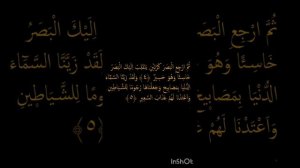 ثُمَّ ارْجِعِ الْبَصَ
إِلَيْكَ الْبَصَرُ
خَاسِئًا وَهُوَ
لَقَدْ زَيَّنَّا السَّمَاءَ
الدُّنْيَا بِمَصَابِيحَ
ومًا لِّلشَّيَاطِينِ
وَأَعْتَدْنَا لَهُمْ
﴿٥﴾
ثُمَّ ارْجِعِ الْبَصَرَ كَرَّتَيْنِ يَنقَلِبْ إِلَيْكَ الْبَصَرُ
خَاسِئًا وَهُوَ حَسِيرٌ ﴿٤﴾ وَلَقَدْ زَيَّنَّا السَّمَاءَ
الدُّنْيَا بِمَصَابِيحَ وَجَعَلْنَاهَا رُجُومًا لِّلشَّيَاطِينِ
وَأَعْتَدْنَا لَهُمْ عَذَابَ السَّعِيرِ ﴿٥﴾
InShOt